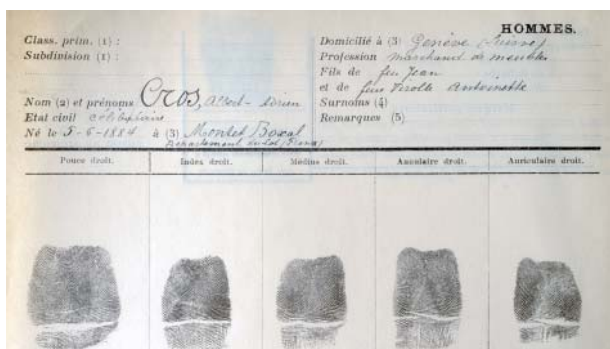 HOMMES.
Class. prim. (1) :
Subdivision (1) :
Nom (2) et prénoms Cros, Albert - Adrien
Etat civil célibataire
Né le 5-6-1884 à (3) Montet Boxal
Département du Lot (France)
Domicilié à (3) Genève (Suisse)
Profession marchand de meubles
Fils de feu Jean
et de feue Virolle Antoinette
Surnoms (4)
Remarques (5)
Pouce droit. Index droit. Médius droit. Annulaire droit. Auriculaire droit.